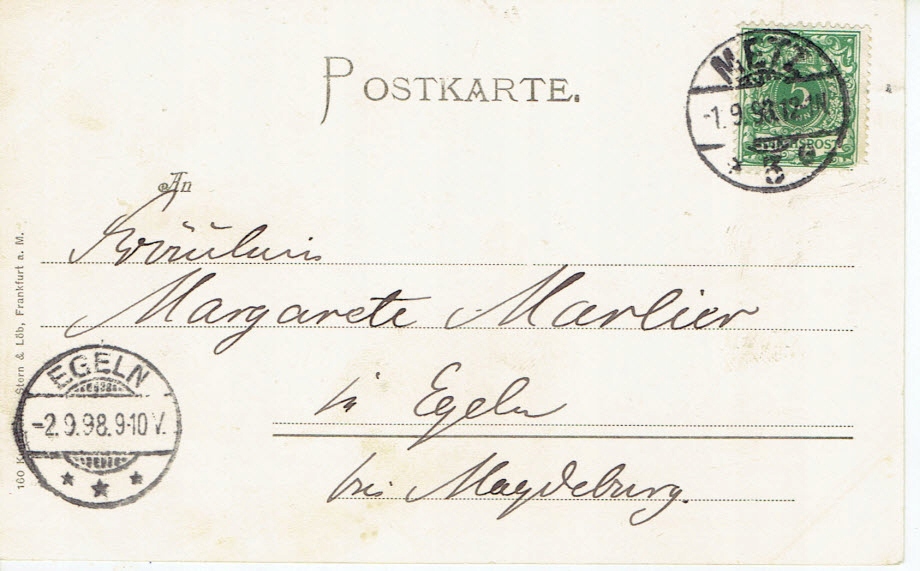 POSTKARTE.
METZ
-1.9.98.12-1N
* 3 c
5
REICHSPOST
An
Fräulein
Margarete Marlier
in Egeln
bei Magdeburg.
EGELN
-2.9.98.9-10 V.
Stern & Löb, Frankfurt a. M.
160